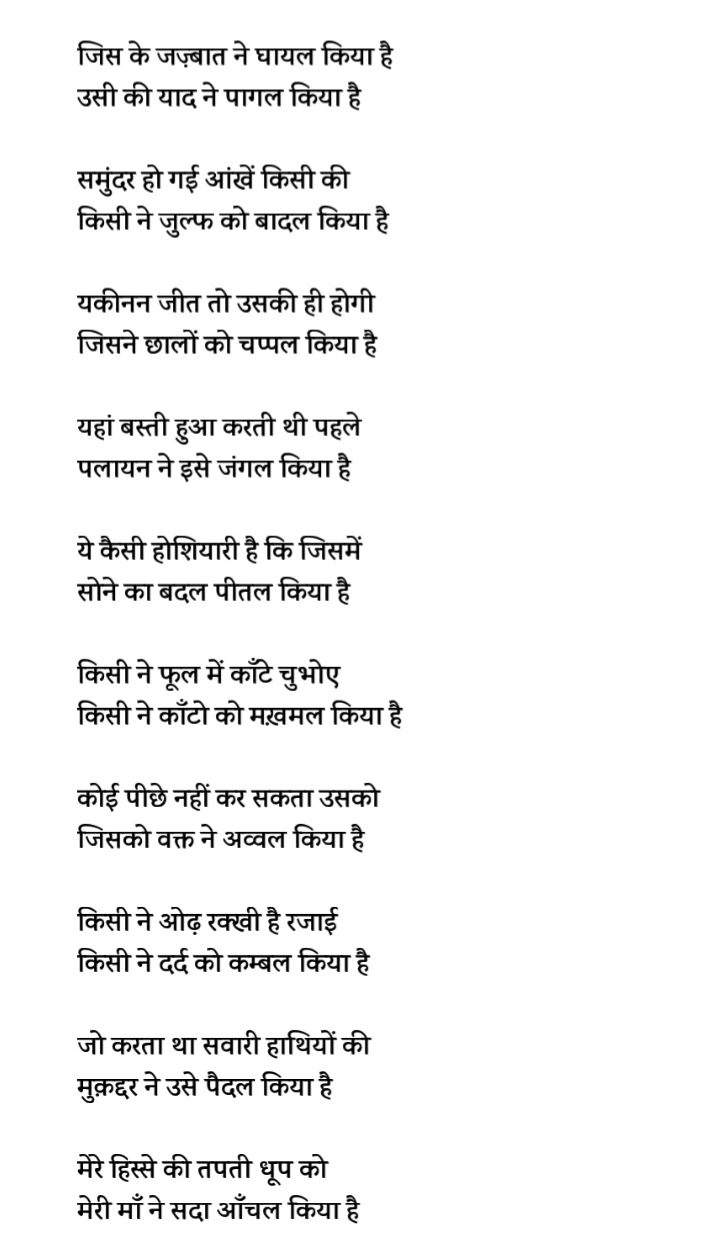 जिस के जज़्बात ने घायल किया है
उसी की याद ने पागल किया है
समुंदर हो गई आंखें किसी की
किसी ने जुल्फ को बादल किया है
यकीनन जीत तो उसकी ही होगी
जिसने छालों को चप्पल किया है
यहां बस्ती हुआ करती थी पहले
पलायन ने इसे जंगल किया है
ये कैसी होशियारी है कि जिसमें
सोने का बदल पीतल किया है
किसी ने फूल में काँटे चुभोए
किसी ने काँटो को मख़मल किया है
कोई पीछे नहीं कर सकता उसको
जिसको वक्त ने अव्वल किया है
किसी ने ओढ़ रक्खी है रजाई
किसी ने दर्द को कम्बल किया है
जो करता था सवारी हाथियों की
मुक़द्दर ने उसे पैदल किया है
मेरे हिस्से की तपती धूप को
मेरी माँ ने सदा आँचल किया है